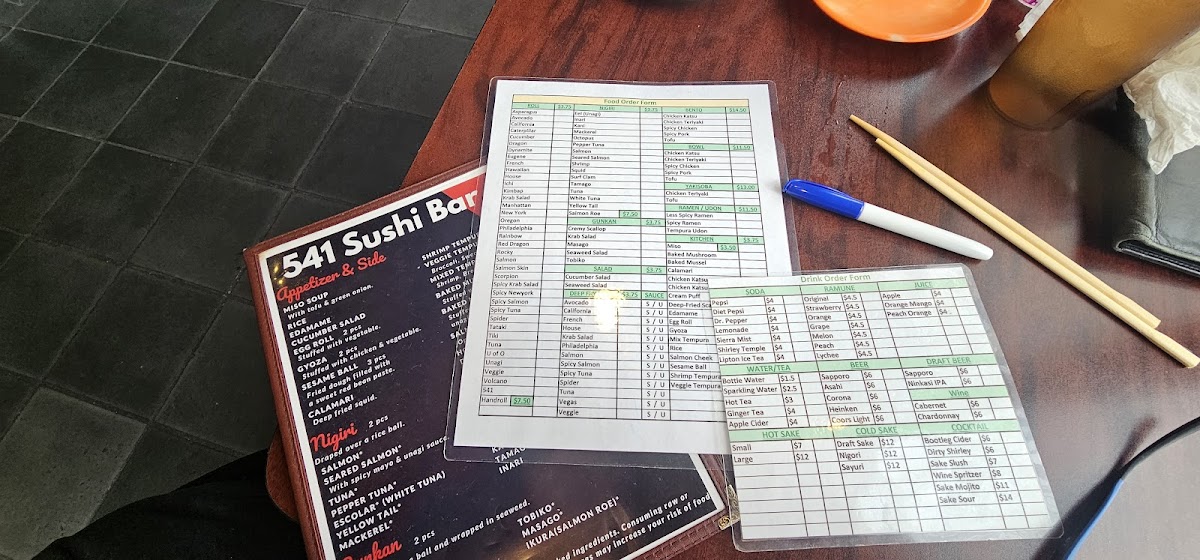 541 Sushi Bar
Appetizer & Side
MISO SOUP
With tofu & green onion.
RICE
EDAMAME
CUCUMBER SALAD
EGG ROLL 2 pcs
Stuffed with vegetable.
GYOZA 2 pcs
Stuffed with chicken & vegetable.
SESAME BALL 3 pcs
Fried dough filled with
a sweet red bean paste.
CALAMARI
Deep fried squid.
SHRIMP TEMPU
VEGGIE TEMPU
MIXED TEMP
BAKED
BAKED
Nigiri 2 pcs
Draped over a rice ball.
SALMON*
SEARED SALMON*
With spicy mayo & unagi sauce.
TUNA*
PEPPER TUNA*
ESCOLAR* (WHITE TUNA)
YELLOW TAIL*
MACKEREL*
TAMAG
INARI
Gunkan 2 pcs
ball and wrapped in seaweed.
TOBIKO*
MASAGO*
IKURA(SALMON ROE)*
ked ingredients. Consuming raw or
es may increase your risk of food
Food Order Form
ROLL $7.75
Asparagus
Avocado
California
Caterpillar
Cucumber
Dragon
Dynamite
Eugene
French
Hawaiian
House
Ichi
Kimbap
Krab Salad
Manhattan
New York
Oregon
Philadelphia
Rainbow
Red Dragon
Rocky
Salmon
Salmon Skin
Scorpion
Spicy Krab Salad
Spicy Newyork
Spicy Salmon
Spicy Tuna
Spider
Tataki
Tiki
Tuna
U of O
Unagi
Veggie
Volcano
541
Handroll $7.50
NIGIRI $3.75
Eel (Unagi)
Inari
Kani
Mackerel
Octopus
Pepper Tuna
Salmon
Seared Salmon
Shrimp
Squid
Surf Clam
Tamago
Tuna
White Tuna
Yellow Tail
Salmon Roe $7.50
GUNKAN $3.75
Cremy Scallop
Krab Salad
Masago
Seaweed Salad
Tobiko
SALAD $3.75
Cucumber Salad
Seaweed Salad
DEEP F $3.75 SAUCE
Avocado S / U
California S / U
French S / U
House S / U
Krab Salad S / U
Philadelphia S / U
Salmon S / U
Spicy Salmon S / U
Spicy Tuna S / U
Spider S / U
Tuna S / U
Vegas S / U
Veggie S / U
BENTO $14.50
Chicken Katsu
Chicken Teriyaki
Spicy Chicken
Spicy Pork
Tofu
BOWL $11.50
Chicken Katsu
Chicken Teriyaki
Spicy Chicken
Spicy Pork
Tofu
YAKISOBA $13.00
Chicken Teriyaki
Tofu
RAMEN / UDON $11.50
Less Spicy Ramen
Spicy Ramen
Tempura Udon
KITCHEN $3.75
Miso $3.50
Baked Mushroom
Baked Mussel
Calamari
Chicken Katsu
Chicken Katsu
Cream Puff
Deep-Fried Sca
Edamame
Egg Roll
Gyoza
Mix Tempura
Rice
Salmon Cheek
Sesame Ball
Shrimp Tempura
Veggie Tempura
Drink Order Form
SODA
Pepsi $4
Diet Pepsi $4
Dr. Pepper $4
Lemonade $4
Sierra Mist $4
Shirley Temple $4
Lipton Ice Tea $4
RAMUNE
Original $4.5
Strawberry $4.5
Orange $4.5
Grape $4.5
Melon $4.5
Peach $4.5
Lychee $4.5
JUICE
Apple $4
Orange Mengo $4
Peach Orango $4
WATER/TEA
Bottle Water $1.5
Sparkling Water $2.5
Hot Tea $3
Ginger Tea $4
Apple Cider $4
BEER
Sapporo $6
Asahi $6
Corona $6
Heinken $6
Coors Light $6
DRAFT BEER
Sapporo $6
Ninkasi IPA $6
Wine
Cabernet $6
Chardonnay $6
HOT SAKE
Small $7
Large $12
COLD SAKE
Draft Sake $12
Nigori $12
Sayuri $12
COCKTAIL
Bootleg Cider $6
Dirty Shirley $6
Sake Slush $7
Wine Spritzer $8
Sake Mojito $11
Sake Sour $14